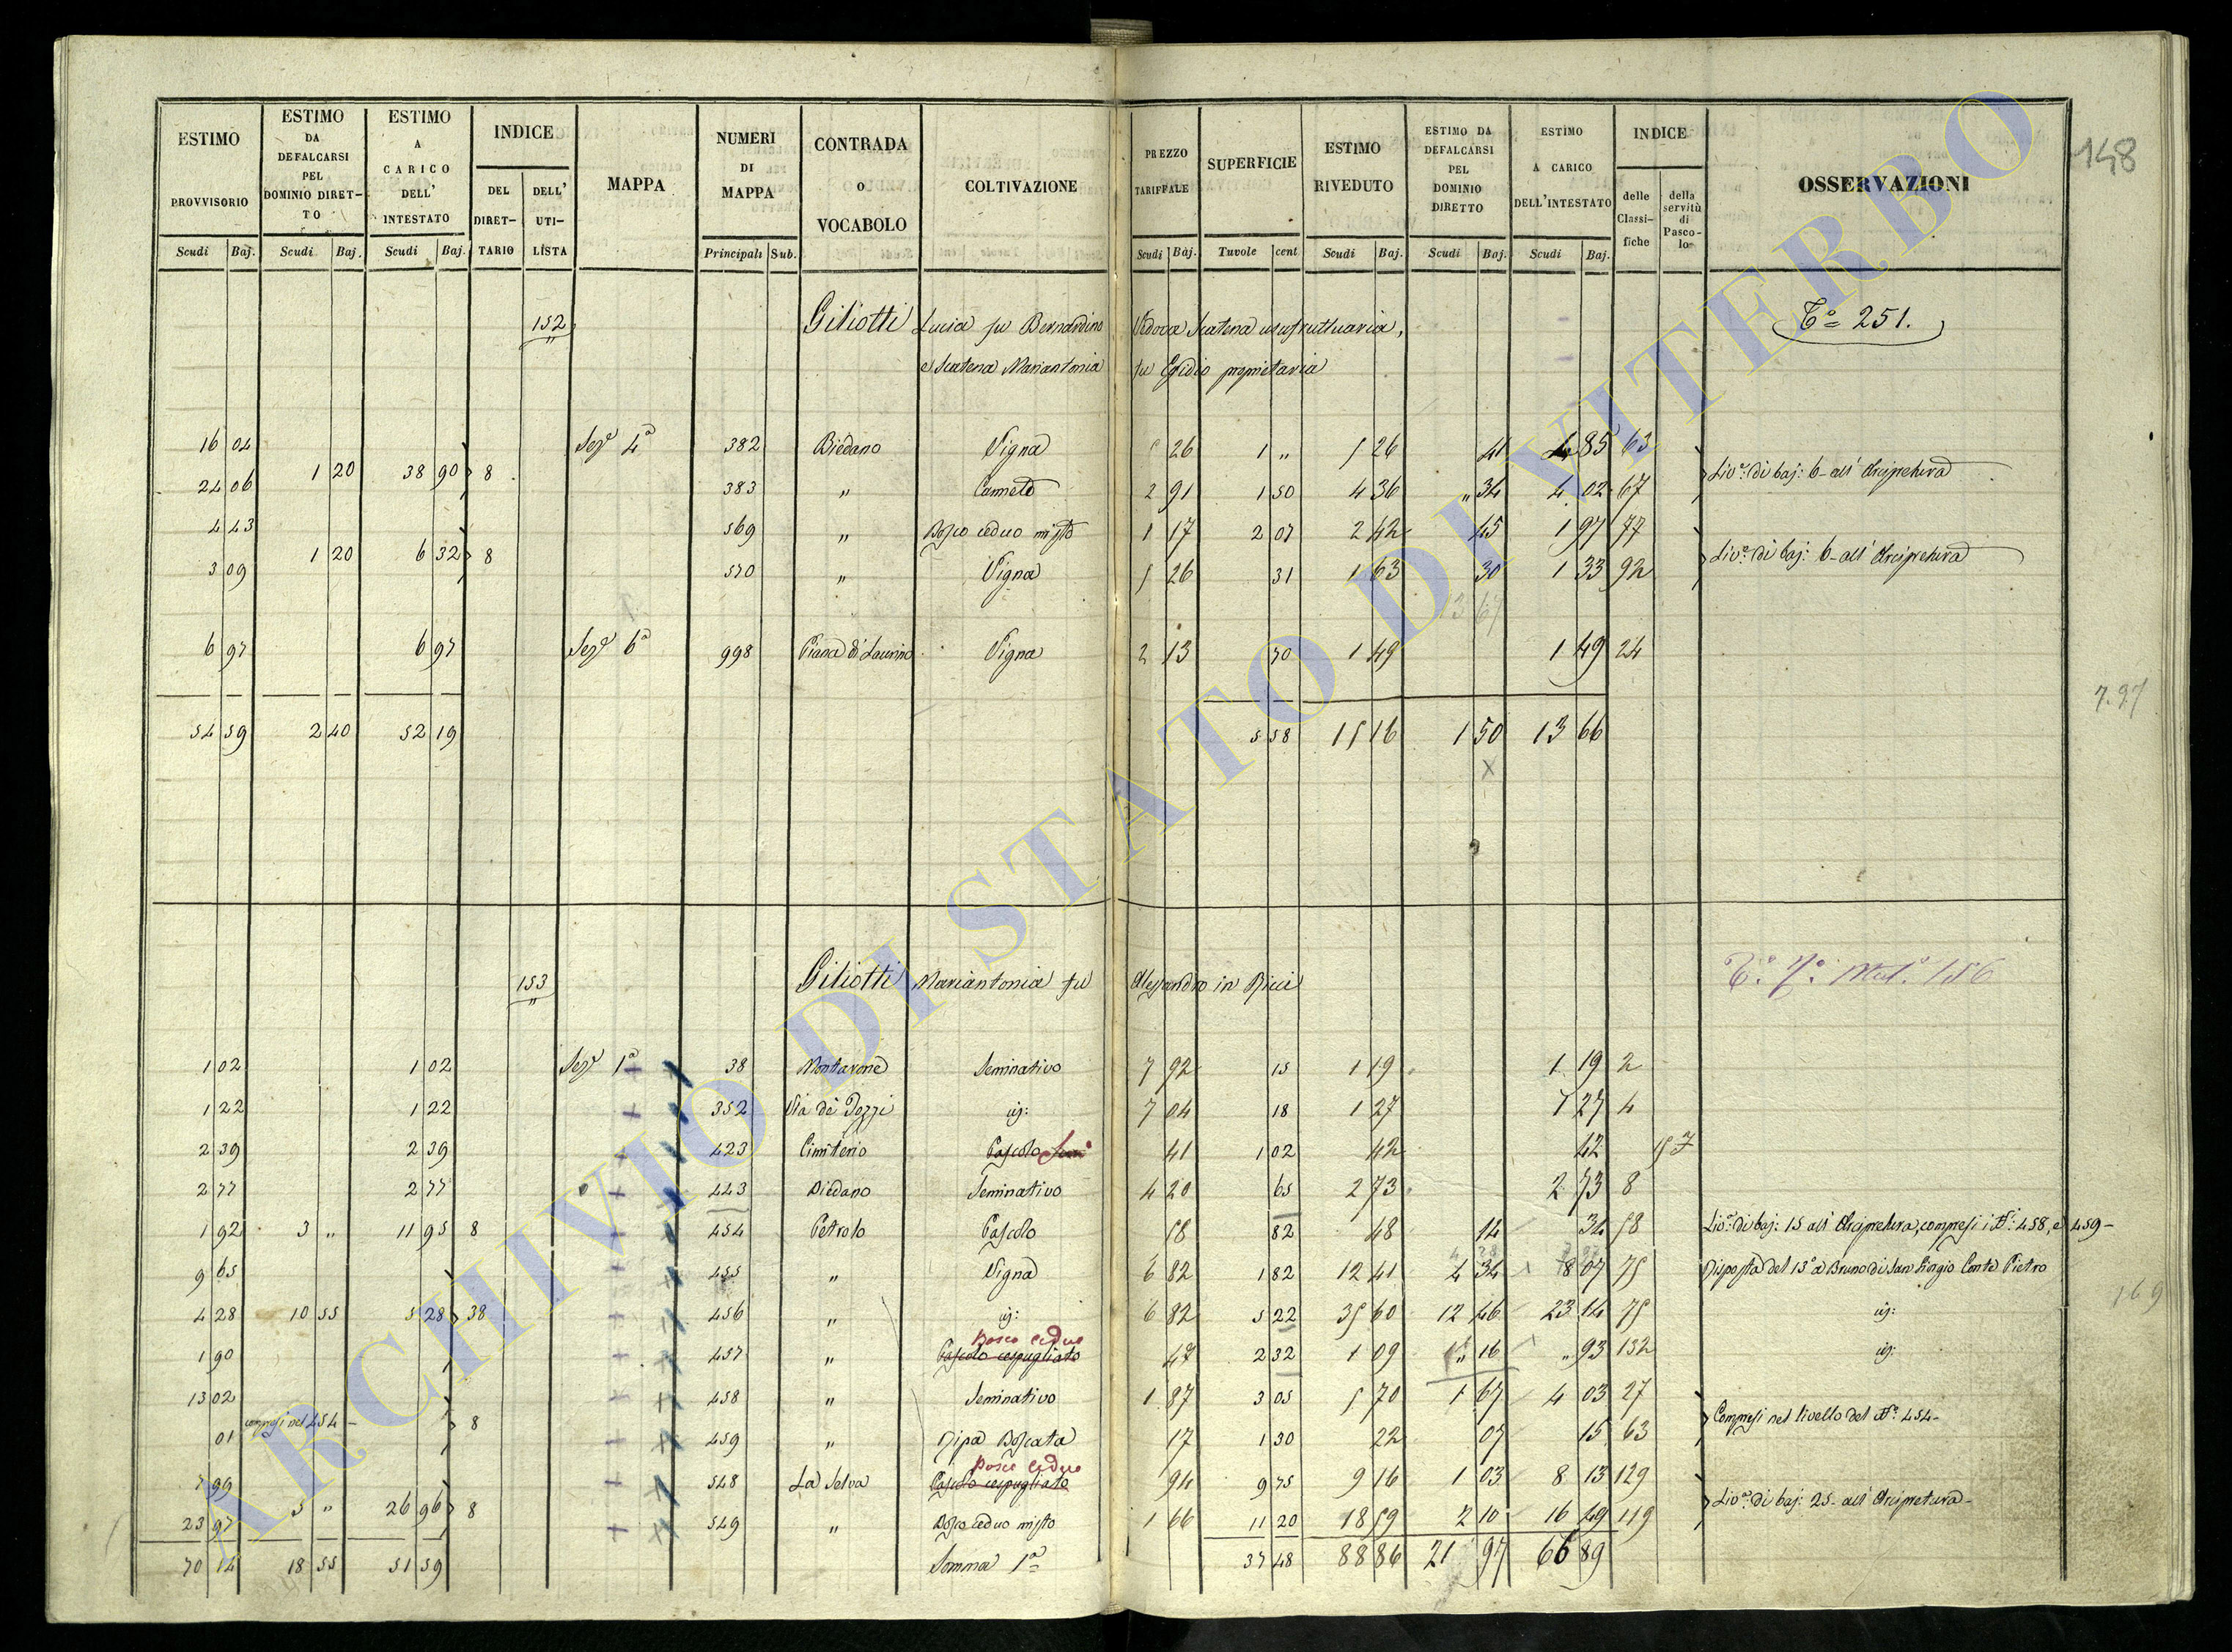 148
ESTIMO PROVVISORIO Scudi Baj.
ESTIMO DA DEFALCARSI PEL DOMINIO DIRET-TO Scudi Baj.
ESTIMO A CARICO DELL' INTESTATO Scudi Baj.
INDICE DEL DIRET-TARIO DELL' UTI-LISTA
MAPPA
NUMERI DI MAPPA Principali Sub.
CONTRADA O VOCABOLO
COLTIVAZIONE
PREZZO TARIFFALE Scudi Baj.
SUPERFICIE Tavole cent
ESTIMO RIVEDUTO Scudi Baj.
ESTIMO DA DEFALCARSI PEL DOMINIO DIRETTO Scudi Baj.
ESTIMO A CARICO DELL'INTESTATO Scudi Baj.
INDICE delle Classi-fiche della servitù di Pasco-lo
OSSERVAZIONI
152 Giliotti Lucia fu Bernardino Vedova Scatena usufruttuaria, T.º 251.
e Scatena Mariantonia fu Egidio proprietaria
16 04 Sezª 4ª 382 Biedano Vigna 5 26 1 " 5 26 41 4 85 63
1 20 38 90 8 Livº: di baj: 6 all' Arcipretura
24 06 383 " Canneto 2 91 1 50 4 36 " 34 4 02 67
4 43 569 " Bosco ceduo misto 1 17 2 07 2 42 45 1 97 77
1 20 6 32 8 Livº: di baj: 6 all' Arcipretura
3 09 570 " Vigna 5 26 31 1 63 30 1 33 92
6 97 6 97 Sezª 6ª 998 Piana di Laurino Vigna 2 13 70 1 49 1 49 24
7.97
54 59 2 40 52 19 5 58 15 16 1 50 13 66
X
153 Giliotti Mariantonia fu Alessandro in Ricci T.º 7º Mat.º 156
1 02 1 02 Sezª 1ª 38 Montarone Seminativo 7 92 15 1 19 1 19 2
1 22 1 22 352 Via de' Pozzi id: 7 04 18 1 27 1 27 4
2 39 2 39 423 Cimiterio Pascolo Sem 41 1 02 42 42
2 77 2 77 443 Biedano Seminativo 4 20 65 2 73 2 73 8
1 92 3 " 11 95 8 454 Petrolo Pascolo 58 82 48 14 34 58 Livº: di baj: 15 all' Arcipretura, compresi i Nº: 458, e 459
9 65 455 " Vigna 6 82 1 82 12 41 4 34 8 07 75 Risposta del 13º a Bruno di San Giorgio Conte Pietro
4 28 10 55 5 28 38 456 " id: 6 82 5 22 35 60 12 46 23 14 75 id:
169
Bosco ceduo
1 90 457 " Pascolo cespugliato 47 2 32 1 09 " 16 " 93 132 id:
13 02 458 " Seminativo 1 87 3 05 5 70 1 67 4 03 27
compresi nel 454 8 Compresi nel livello del Nº: 454
01 459 " Ripa Boscata 17 1 30 22 07 15 63
Bosco ceduo
7 99 548 La Selva Pascolo cespugliato 94 9 75 9 16 1 03 8 13 129
5 " 26 96 8 Livº: di baj: 25 all' Arcipretura
23 97 549 " Bosco ceduo misto 1 66 11 20 18 59 2 10 16 49 119
70 14 18 55 51 59 Somma 1ª 37 48 88 86 21 97 66 89
ARCHIVIO DI STATO DI VITERBO